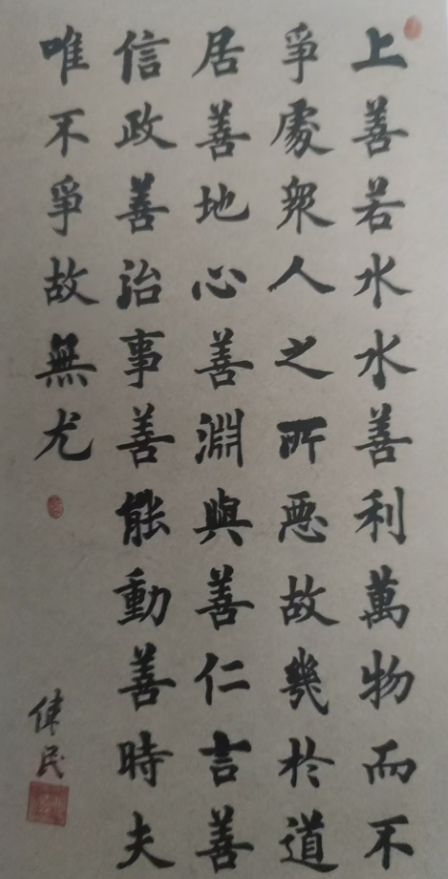 上善若水水善利萬物而不
爭處衆人之所惡故幾於道
居善地心善淵與善仁言善
信政善治事善能動善時夫
唯不爭故無尤
偉民